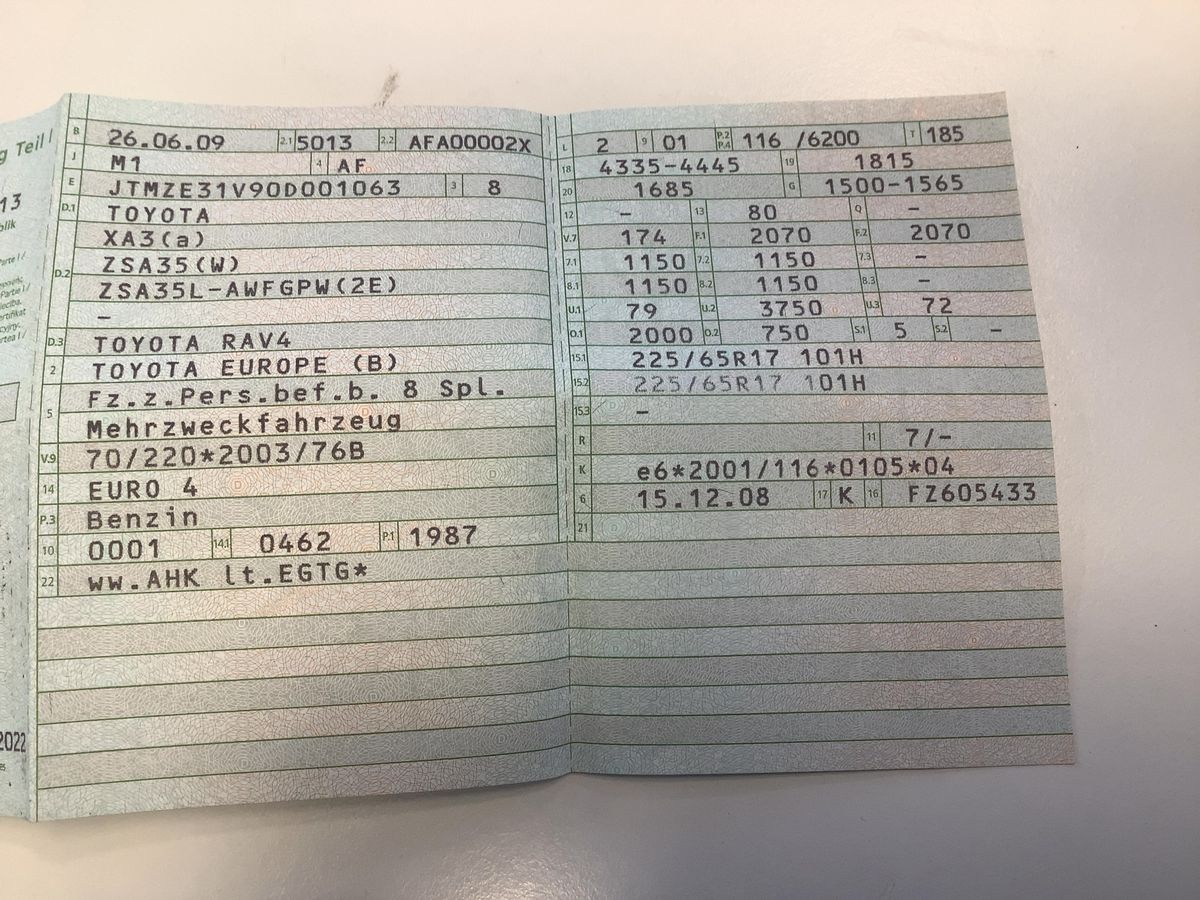 g Teil I
13
blik
Parte I /
Partie I /
2022
B 26.06.09 2.1 5013 2.2 AFA00002X
J M1 4 AF
E JTMZE31V90D001063 3 8
D.1 TOYOTA
XA3(a)
D.2 ZSA35(W)
ZSA35L-AWFGPW(2E)
–
D.3 TOYOTA RAV4
2 TOYOTA EUROPE (B)
5 Fz.z.Pers.bef.b. 8 Spl.
Mehrzweckfahrzeug
V.9 70/220*2003/76B
14 EURO 4
P.3 Benzin
10 0001 14.1 0462 P.1 1987
22 ww.AHK lt.EGTG*
L 2 9 01 P.2 P.4 116 /6200 T 185
18 4335-4445 19 1815
20 1685 G 1500-1565
12 – 13 80 Q –
V.7 174 F.1 2070 F.2 2070
7.1 1150 7.2 1150 7.3 –
8.1 1150 8.2 1150 8.3 –
U.1 79 U.2 3750 U.3 72
O.1 2000 O.2 750 S.1 5 S.2 –
15.1 225/65R17 101H
15.2 225/65R17 101H
15.3 –
R 11 7/-
K e6*2001/116*0105*04
6 15.12.08 17 K 16 FZ605433
21